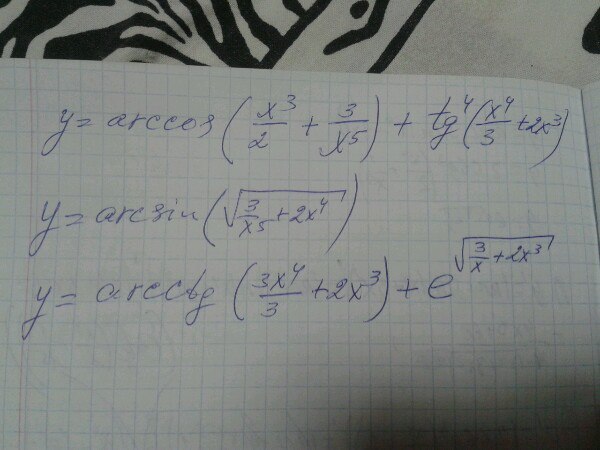 y = arccos(x³/2 + 3/x⁵) + tg⁴(x⁴/3 + 2x³)
y = arcsin(√(3/x⁵ + 2x⁴))
y = arcctg(3x⁴/3 + 2x³) + e^√(3/x + 2x³)